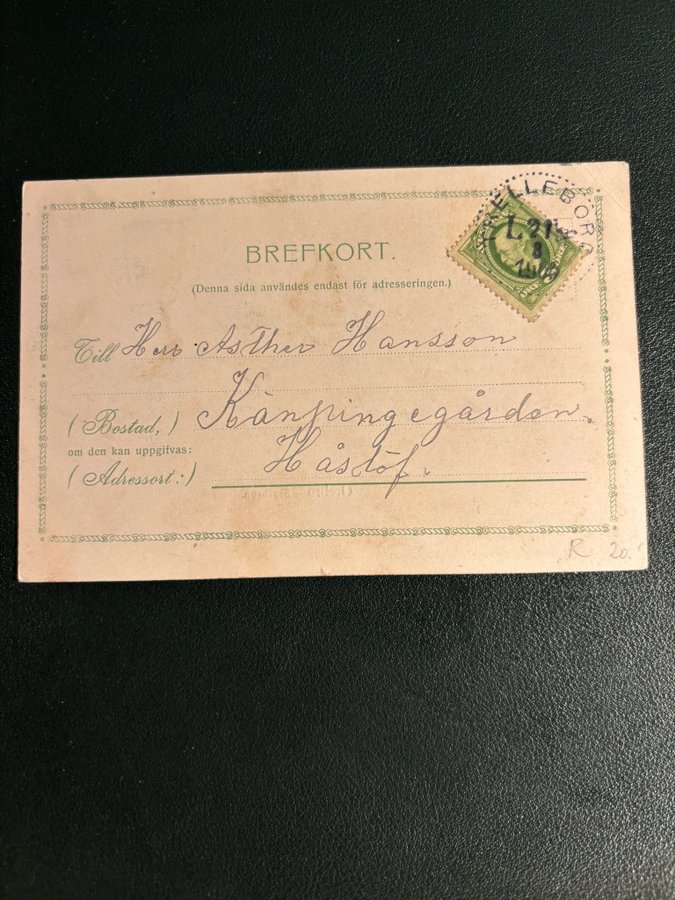 BREFKORT.
(Denna sida användes endast för adresseringen.)
TRELLEBORG
L 21
8
Till Herr Asther Hansson
(Bostad,) Känpingegården.
om den kan uppgifvas:
(Adressort:) Håslöf.
R 20.